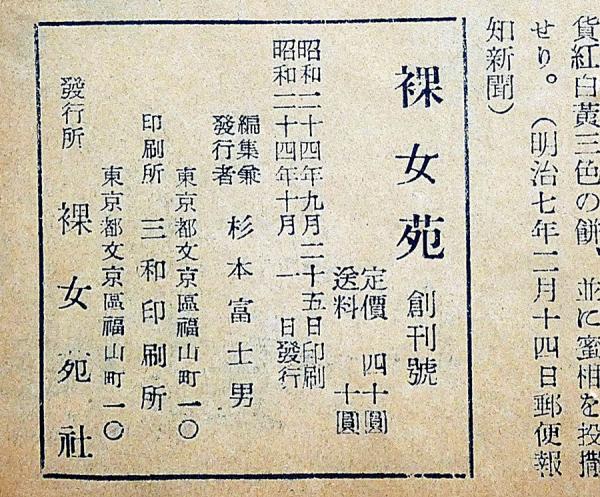 貨紅白黃三色の餠、並に蜜柑を投撒
せり。（明治七年二月十四日郵便報
知新聞）
裸女苑 創刊號
定價 四十圓
送料 十圓
昭和二十四年九月二十五日印刷
昭和二十四年十月一日發行
編集兼
發行者 杉本富士男
東京都文京區福山町一〇
印刷所 三和印刷所
東京都文京區福山町一〇
發行所 裸女苑社